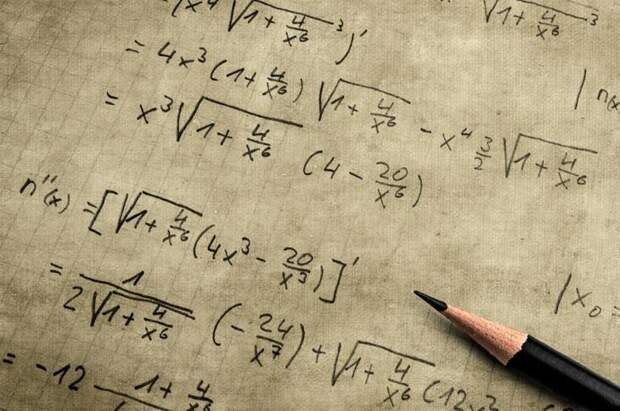 (x⁴ √(1 + 4/x⁶)³)' √(1 + 4/x⁶)³
= 4x³ (1 + 4/x⁶) √(1 + 4/x⁶) − x⁴ 3/2 √(1 + 4/x⁶)
= x³ √(1 + 4/x⁶) (4 − 20/x⁶)
| n(x
n''(x) = [√(1 + 4/x⁶) (4x³ − 20/x³)]'
| x₀ =
= 1/(2√(1 + 4/x⁶)) (−24/x⁷) + √(1 + 4/x⁶) (12x²
= −12 (1 + 4/x⁶)